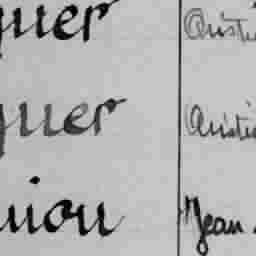 quer Aristi
quer Aristi
nion Jean